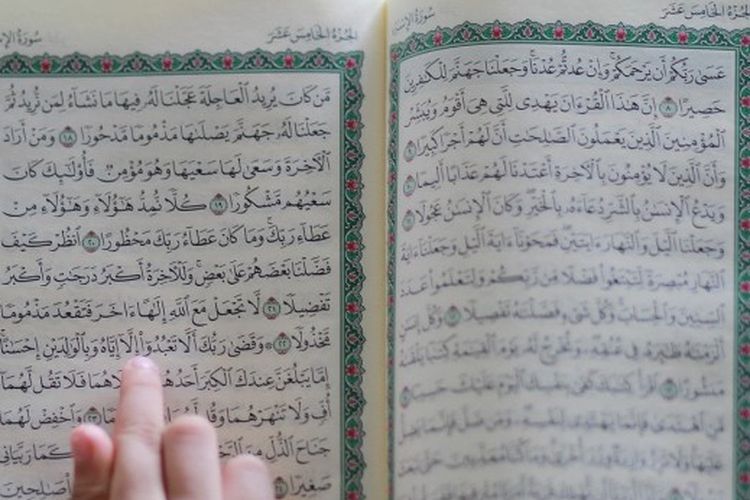 الجُزْءُ الخَامِسَ عَشَرَ سُورَةُ الإِسْرَاءِ
عَسَىٰ رَبُّكُمْ أَن يَرْحَمَكُمْ وَإِنْ عُدتُّمْ عُدْنَا وَجَعَلْنَا جَهَنَّمَ لِلْكَٰفِرِينَ
حَصِيرًا ٨ إِنَّ هَٰذَا ٱلْقُرْءَانَ يَهْدِى لِلَّتِى هِىَ أَقْوَمُ وَيُبَشِّرُ
ٱلْمُؤْمِنِينَ ٱلَّذِينَ يَعْمَلُونَ ٱلصَّٰلِحَٰتِ أَنَّ لَهُمْ أَجْرًا كَبِيرًا ٩
وَأَنَّ ٱلَّذِينَ لَا يُؤْمِنُونَ بِٱلْءَاخِرَةِ أَعْتَدْنَا لَهُمْ عَذَابًا أَلِيمًا ١٠
وَيَدْعُ ٱلْإِنسَٰنُ بِٱلشَّرِّ دُعَآءَهُۥ بِٱلْخَيْرِ وَكَانَ ٱلْإِنسَٰنُ عَجُولًا ١١
وَجَعَلْنَا ٱلَّيْلَ وَٱلنَّهَارَ ءَايَتَيْنِ فَمَحَوْنَآ ءَايَةَ ٱلَّيْلِ وَجَعَلْنَآ ءَايَةَ
ٱلنَّهَارِ مُبْصِرَةً لِّتَبْتَغُوا۟ فَضْلًا مِّن رَّبِّكُمْ وَلِتَعْلَمُوا۟ عَدَدَ
ٱلسِّنِينَ وَٱلْحِسَابَ وَكُلَّ شَىْءٍ فَصَّلْنَٰهُ تَفْصِيلًا ١٢ وَكُلَّ إِنسَٰنٍ
أَلْزَمْنَٰهُ طَٰٓئِرَهُۥ فِى عُنُقِهِۦ وَنُخْرِجُ لَهُۥ يَوْمَ ٱلْقِيَٰمَةِ كِتَٰبًا يَلْقَىٰهُ
مَنشُورًا ١٣ ٱقْرَأْ كِتَٰبَكَ كَفَىٰ بِنَفْسِكَ ٱلْيَوْمَ عَلَيْكَ حَسِيبًا ١٤
مَّنِ ٱهْتَدَىٰ فَإِنَّمَا يَهْتَدِى لِنَفْسِهِۦ وَمَن ضَلَّ فَإِنَّمَا يَضِلُّ
الجُزْءُ الخَامِسَ عَشَرَ سُورَةُ الإِسْـ
مَّن كَانَ يُرِيدُ ٱلْعَاجِلَةَ عَجَّلْنَا لَهُۥ فِيهَا مَا نَشَآءُ لِمَن نُّرِيدُ ثُمَّ
جَعَلْنَا لَهُۥ جَهَنَّمَ يَصْلَىٰهَا مَذْمُومًا مَّدْحُورًا ١٨ وَمَنْ أَرَادَ
ٱلْءَاخِرَةَ وَسَعَىٰ لَهَا سَعْيَهَا وَهُوَ مُؤْمِنٌ فَأُو۟لَٰٓئِكَ كَانَ
سَعْيُهُم مَّشْكُورًا ١٩ كُلًّا نُّمِدُّ هَٰٓؤُلَآءِ وَهَٰٓؤُلَآءِ مِنْ
عَطَآءِ رَبِّكَ وَمَا كَانَ عَطَآءُ رَبِّكَ مَحْظُورًا ٢٠ ٱنظُرْ كَيْفَ
فَضَّلْنَا بَعْضَهُمْ عَلَىٰ بَعْضٍ وَلَلْءَاخِرَةُ أَكْبَرُ دَرَجَٰتٍ وَأَكْبَرُ
تَفْضِيلًا ٢١ لَّا تَجْعَلْ مَعَ ٱللَّهِ إِلَٰهًا ءَاخَرَ فَتَقْعُدَ مَذْمُومًا
مَّخْذُولًا ٢٢ ۞ وَقَضَىٰ رَبُّكَ أَلَّا تَعْبُدُوٓا۟ إِلَّآ إِيَّاهُ وَبِٱلْوَٰلِدَيْنِ إِحْسَٰنًا
إِمَّا يَبْلُغَنَّ عِندَكَ ٱلْكِبَرَ أَحَدُهُمَآ لَاهُمَا فَلَا تَقُل لَّهُمَآ
أُفٍّ وَلَا تَنْهَرْهُمَا وَقُل لَّهُمَا مًا ٢٣ وَٱخْفِضْ لَهُمَا
جَنَاحَ ٱلذُّلِّ مِنَ ٱلرَّحْمَةِ كَمَا رَبَّيَانِى
صَغِيرًا ٢٤